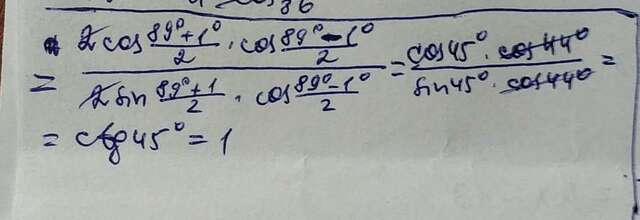 = 2cos (89°+1°)/2 · cos (89°-1°)/2 / 2sin (89°+1)/2 · cos (89°-1°)/2 = cos45° · cos44° / sin45° · cos44° =
= ctg 45° = 1